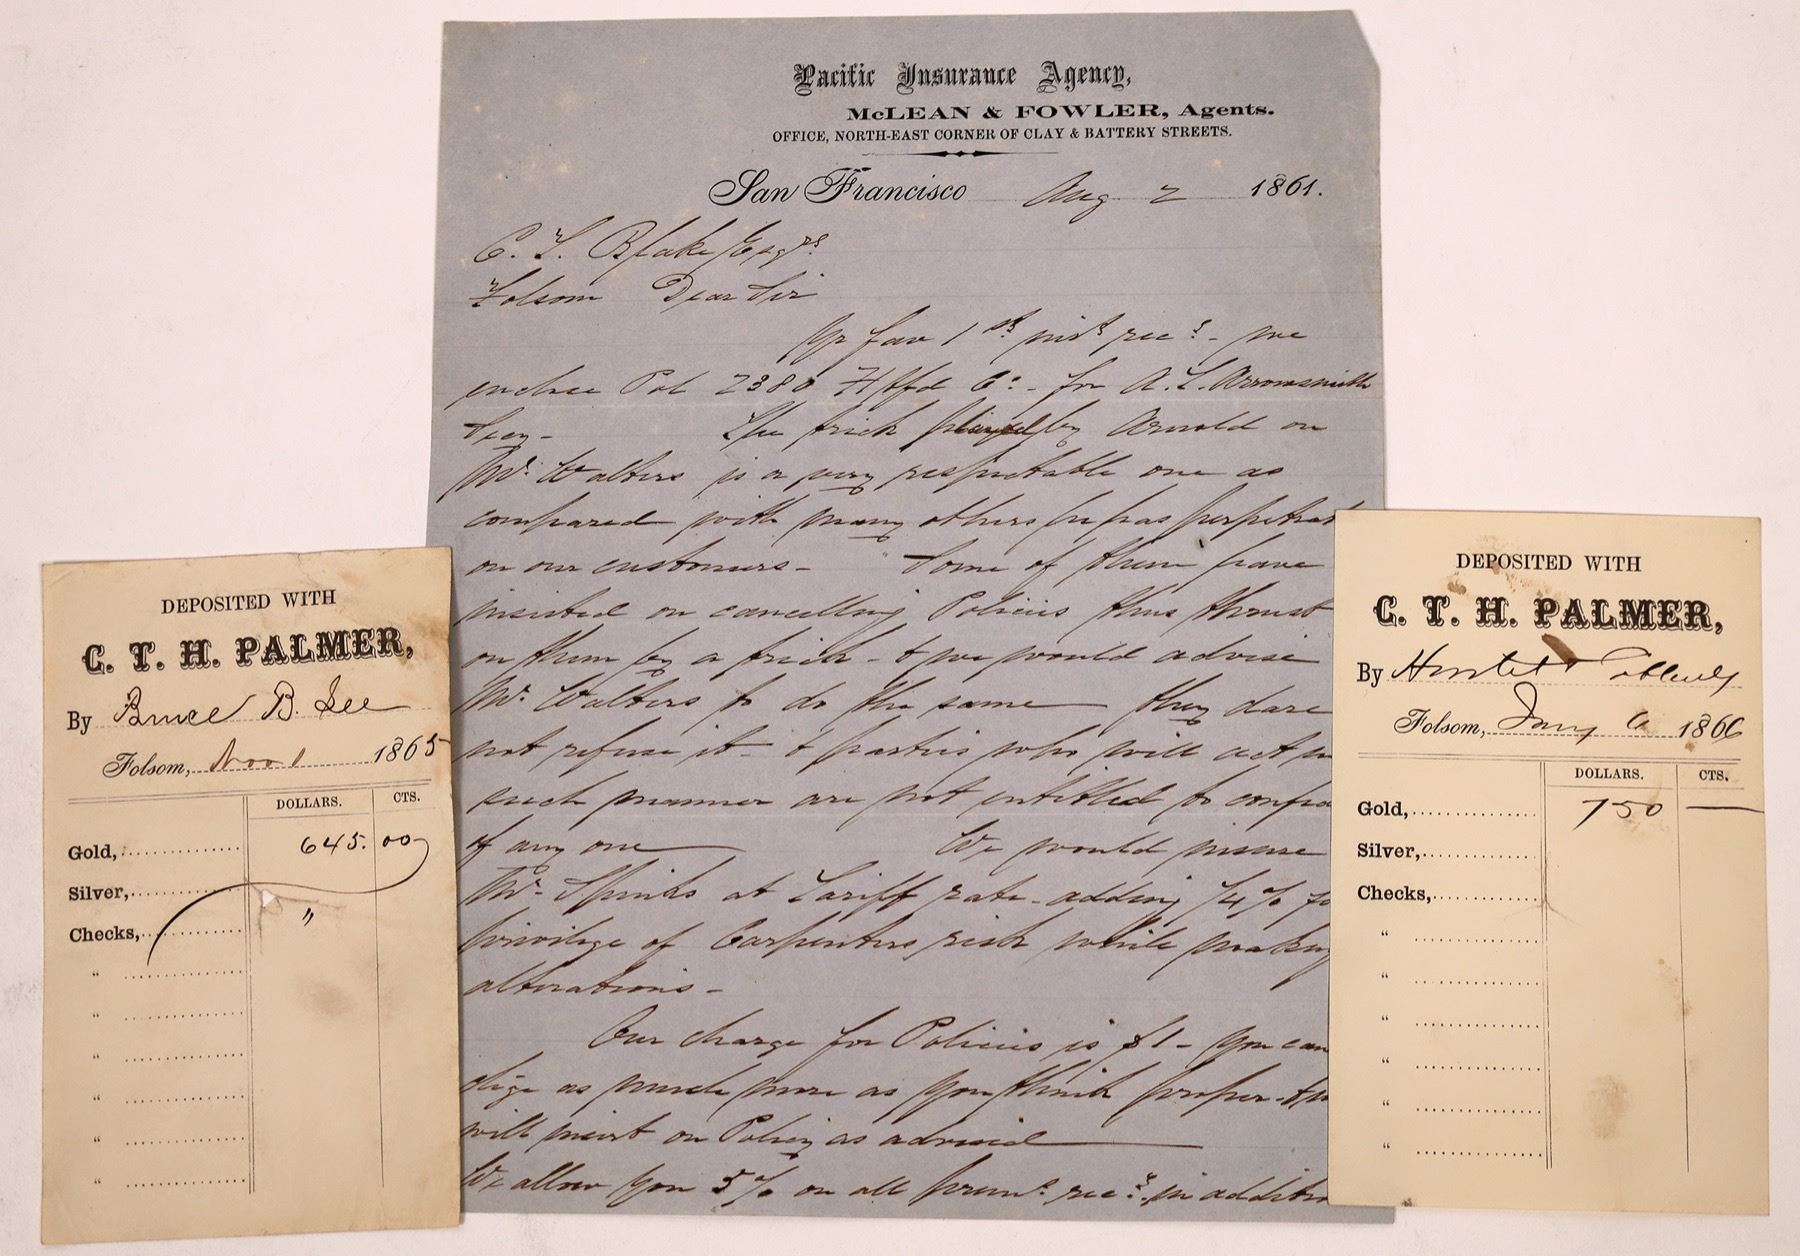 Pacific Insurance Agency,
McLEAN & FOWLER, Agents.
OFFICE, NORTH-EAST CORNER OF CLAY & BATTERY STREETS.
San Francisco Aug 2 1861.
C. T. Blake Esqr
Folsom Dear Sir
Yr fav 1st inst recd - we
enclose Pol 2380 Htfd Co - for A. L. Arrowsmith
The trick played by Arnold on
Mr. Walters is a very respectable one as
compared with many others he has perpetrat
on our customers - Some of them have
insisted on cancelling Policies thus thrust
on them by a trick - & we would advise
Mr. Walters to do the same they dare
not refuse it - & parties who will act in
such manner are not entitled to confid
of any one We would insure
Mr. Spinks at Tariff rate - adding 1/4 % fo
privilege of Carpenters risk while making
alterations -
Our charge for Policies is $1 - you can
as much more as you think proper - & w
will insert on Policy as advised
We allow you 5 % on all prems recd in addition
DEPOSITED WITH
C. T. H. PALMER,
By Bruce B. Lee
Folsom, Nov 1 1865
DOLLARS. CTS.
Gold, 645. 00
Silver,
Checks, "
"
"
"
"
"
"
DEPOSITED WITH
C. T. H. PALMER,
By
Folsom, Jany 6 1866
DOLLARS. CTS.
Gold, 750 —
Silver,
Checks,
"
"
"
"
"
"